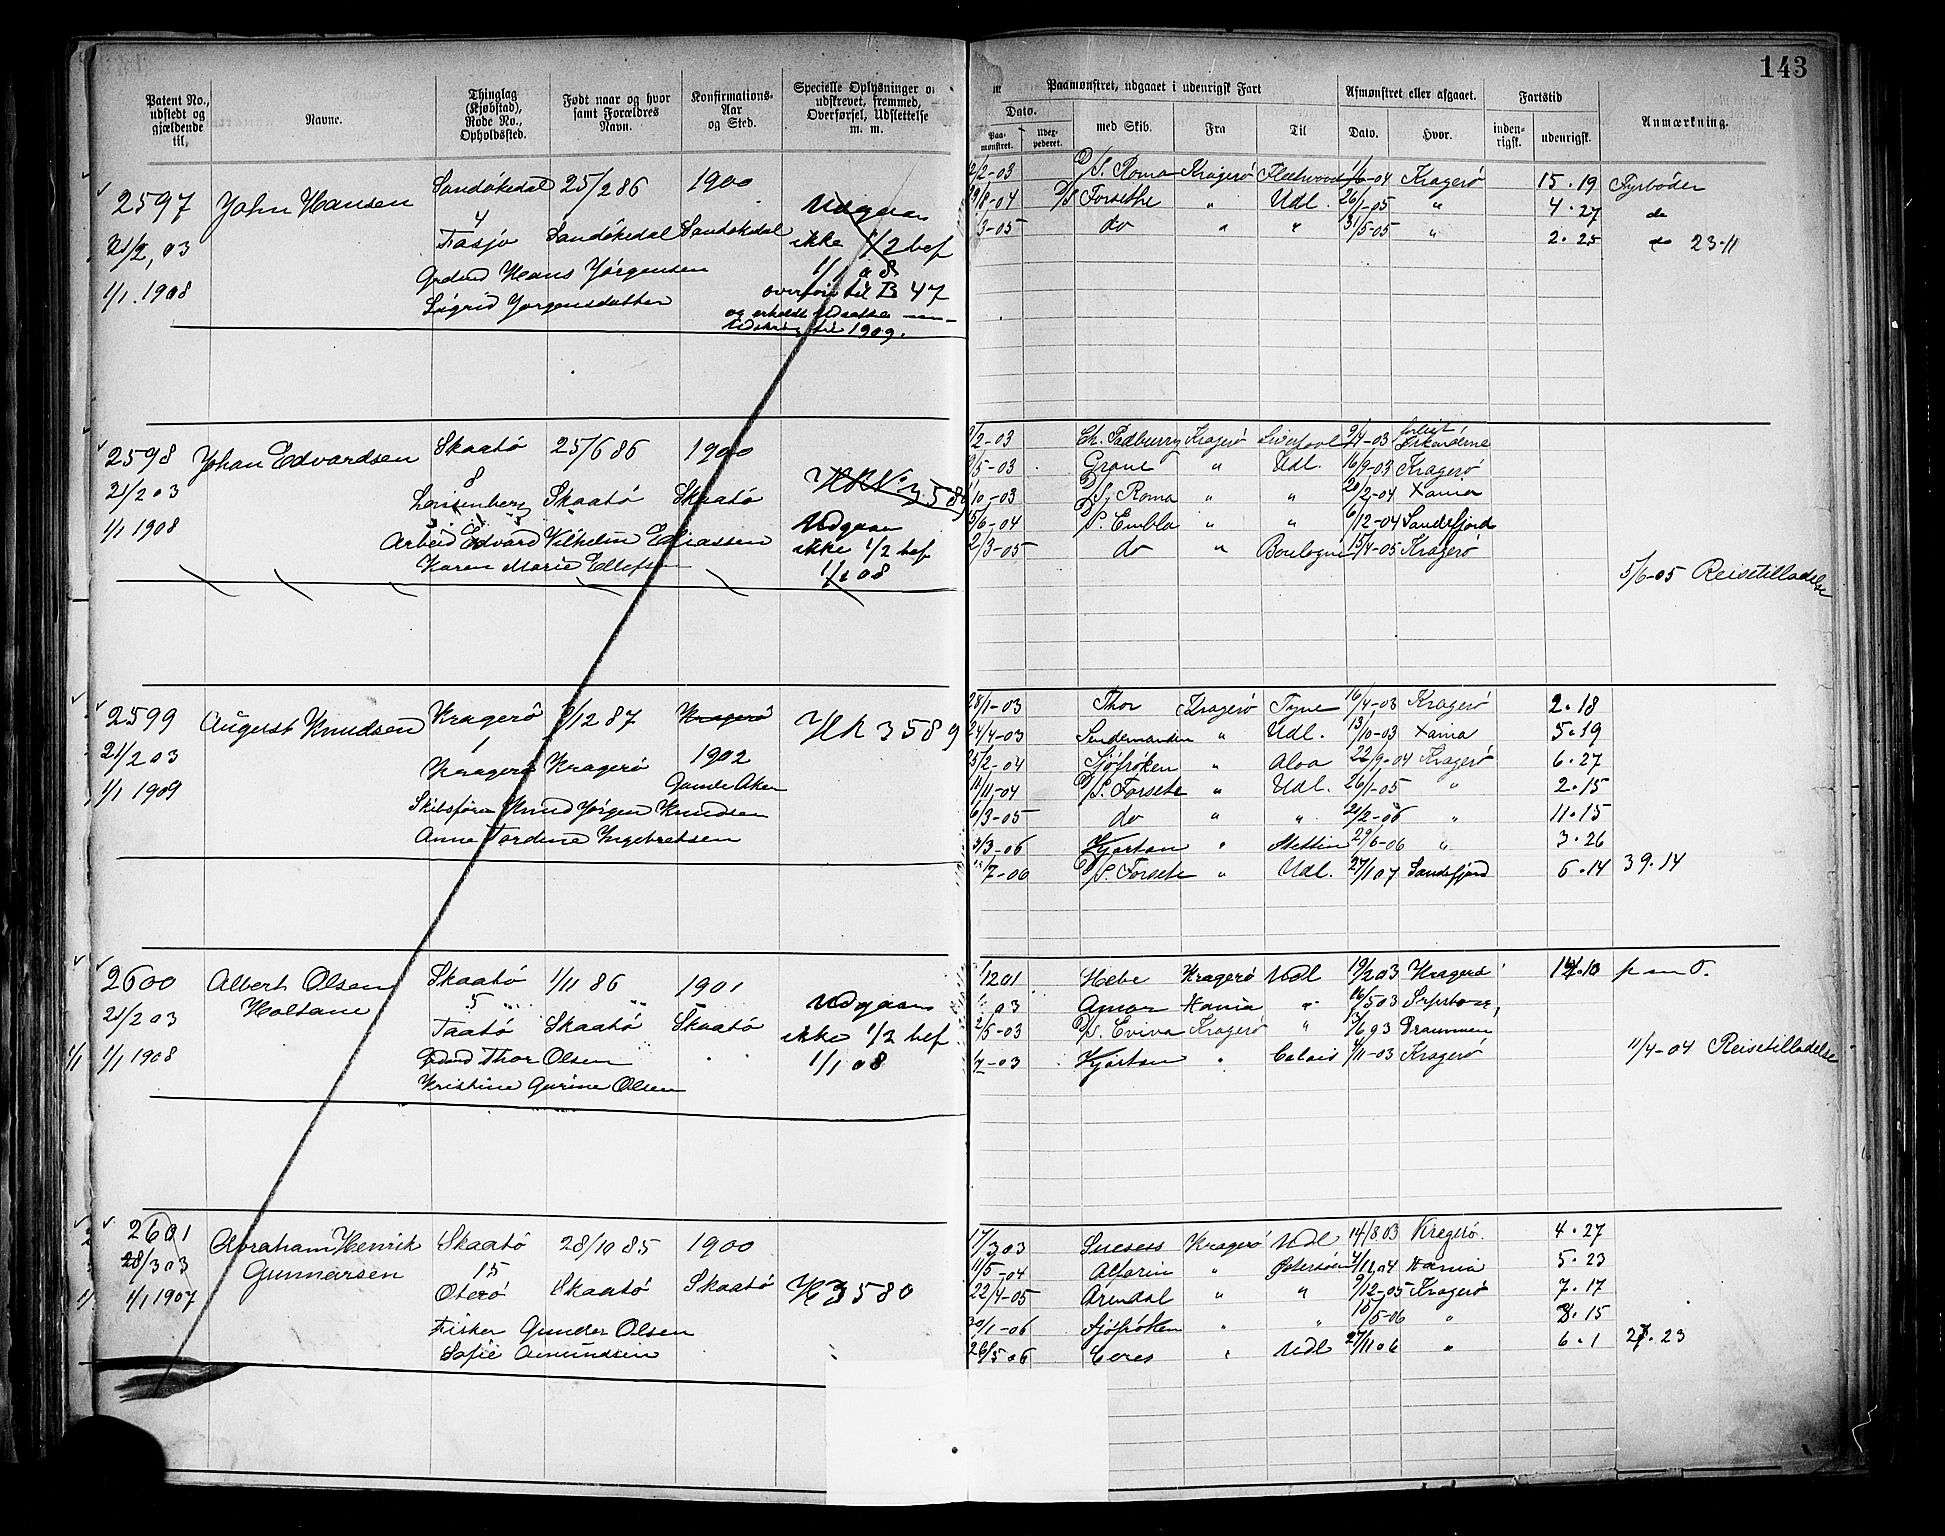 143
Patent No., udstedt og gjældende til.
Navne.
Thinglag (Kjøbstad), Rode No., Opholdssted.
Født naar og hvor samt Forældres Navn.
Konfirmations-Aar og Sted.
Specielle Oplysninger
udskrevet, fremmed, Overførsel, Udslettelse m. m.
Paamønstret, udgaaet i udenrigsk Fart
Dato.
Paamønstret.
Udexpederet.
med Skib.
Fra
Til
Afmønstret eller afgaaet.
Dato.
Hvor.
Fartstid
indenrigsk.
udenrigsk.
Anmærkning.
2597 John Hansen Sandøkedal 25/2 86 1900
4
21/2, 03 Tasjø Sandøkedal Sandøkedal
1/1. 1908 Hans Jørgensen
Sigrid Jørgensdatter
Udgaar
ikke 1/2 bef
1/1 08
til B 47
1909.
2/2-03 D/S. Roma Kragerø Fleetwood 1/6-04 Kragerø 15.19 Fyrbøder
D/S Forsethe " Udl. 26/1-05 " 4.27 do
3-05 do " " 31/5-05 " 2.25 do 23.11
2598 Johan Edvardsen Skaatø 25/6 86 1900
8
21/2 03 Skaatø Skaatø
1/1 1908 Arbeid Edvard Vilhelm Eliassen
Karen Marie Ellefsen
HR No 3589
Udgaar
ikke 1/2 bef
1/1 08
2/2-03 Ch. Kragerø Liverpool 9/4-03
5-03 Grane " Udl. 16/9-03 Kragerø
10-03 D/S. Roma " " 20/2-04 Xania
5/6-04 D/S. Embla " " 6/12-04 Sandefjord
2/3-05 do " Boulogne 15/4-05 Kragerø
5/6-05 Reisetilladelse
2599 August Knudsen Kragerø 9/12 87 Kragerø
1 1902
21/2 03 Kragerø Kragerø Gamle Aker
1/1 1909 Skibsfører Knud Jørgen Knudsen
Anne Tordine Ingebretsen
HR 3589
28/1-03 Thor Kragerø Tyne 16/4-03 Kragerø 2.18
24/4-03 " Udl. 13/10-03 Xania 5.19
25/2-04 Sjøfrøken " Aloa 22/9-04 Kragerø 6.27
11/11-04 D/S. Forsete " Udl. 26/1-05 " 2.15
6/3-05 do " " 20/2-06 " 11.15
3-06 Kjartan " Stettin 29/6-06 " 3.26
7-06 D/S. Forsete " Udl. 27/1 07 Sandefjord 6.14 39.14
2600 Albert Olsen Skaatø 1/11 86 1901
Holtane 5
21/2 03 Taatø Skaatø Skaatø
1/1 1908 Thor Olsen
Kristine Gurine Olsen
Udgaar
ikke 1/2 bef
1/1 08
12 01 Hebe Kragerø Udl 19/2 03 Kragerø
03 Xania " 16/5 03
2/5-03 D/S. Eviva Kragerø " Drammen
7-03 Kjartan " Calais 4/11-03 Kragerø
11/4-04 Reisetilladelse
2601 Abraham Henrik Skaatø 28/10 85 1900
28/3 03 Gunnarsen 15
1/1 1907 Oterø Skaatø Skaatø
Fisker Gunder Olsen
Sofie Amundsen
H 3580
17/3 03 Kragerø Udl 14/8 03 Kragerø. 4.27
11/5-04 " Østersøen Xania 5.23
22/4-05 Arendal " " 9/12-05 Kragerø 7.17
30/1-06 Sjøfrøken " " 15/5-06 " 3.15
26/5 06 Ceres " Udl 27/11 06 " 6.1 27.23